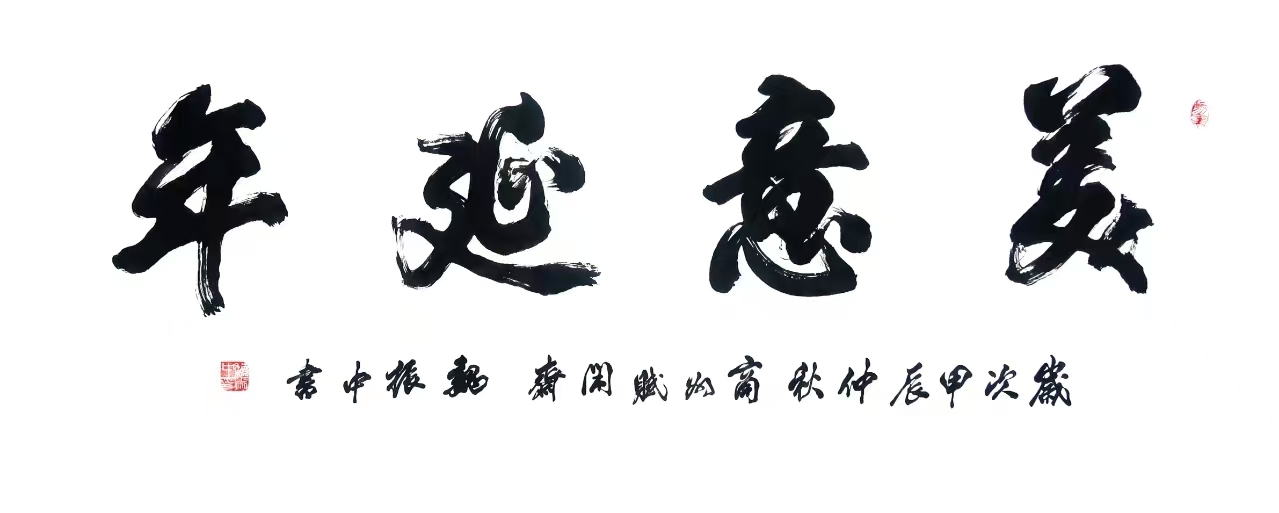 美意延年
歲次甲辰仲秋商於賦閑齋 魏振中書